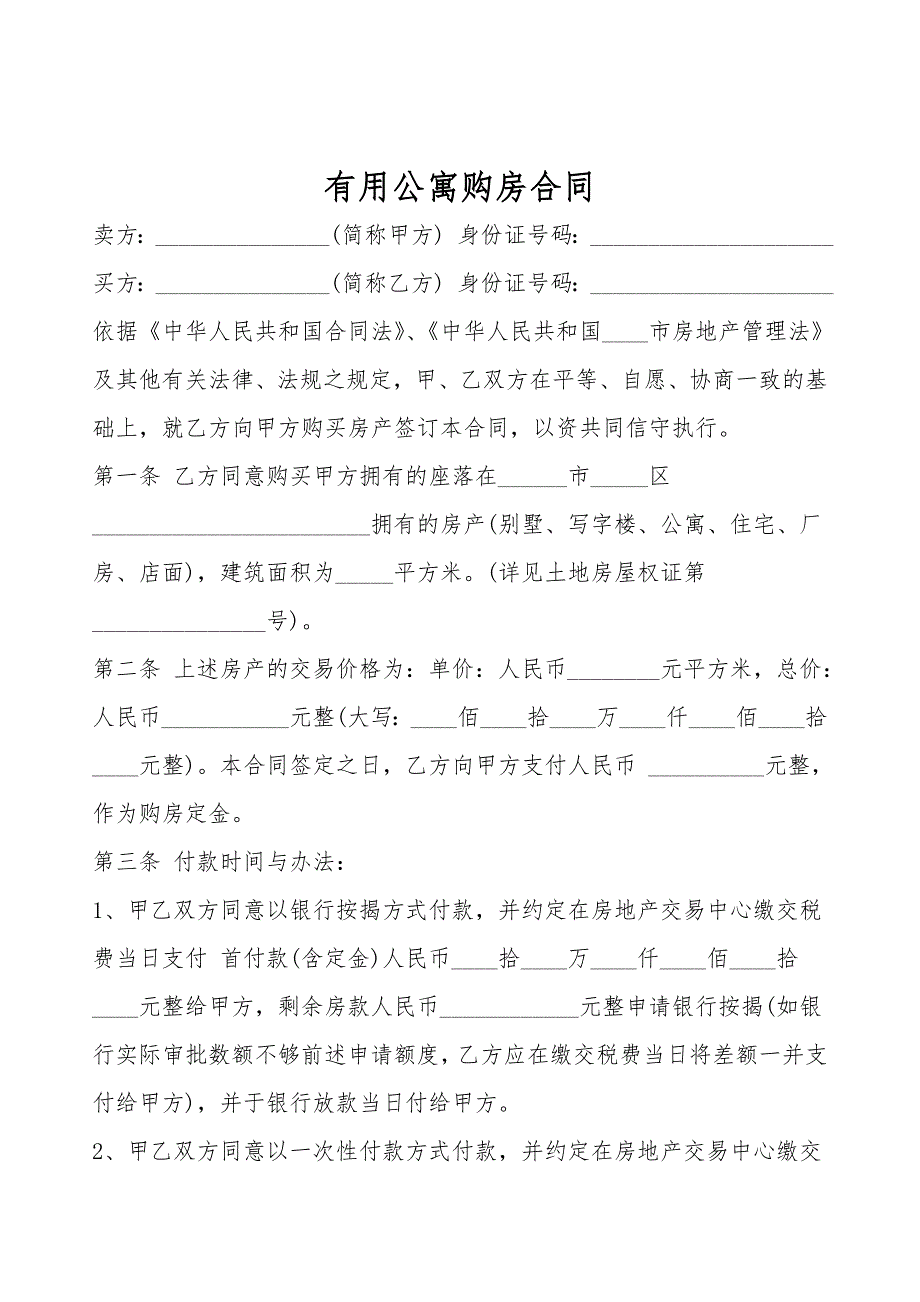 有用公寓购房合同
卖方：_______________(简称甲方) 身份证号码：_____________________
买方：_______________(简称乙方) 身份证号码：_____________________
依据《中华人民共和国合同法》、《中华人民共和国____市房地产管理法》
及其他有关法律、法规之规定，甲、乙双方在平等、自愿、协商一致的基
础上，就乙方向甲方购买房产签订本合同，以资共同信守执行。
第一条 乙方同意购买甲方拥有的座落在______市_____区
________________________拥有的房产(别墅、写字楼、公寓、住宅、厂
房、店面)，建筑面积为_____平方米。(详见土地房屋权证第
_______________号)。
第二条 上述房产的交易价格为：单价：人民币________元平方米，总价：
人民币___________元整(大写：____佰____拾____万____仟____佰____拾
____元整)。本合同签定之日，乙方向甲方支付人民币 __________元整，
作为购房定金。
第三条 付款时间与办法：
1、甲乙双方同意以银行按揭方式付款，并约定在房地产交易中心缴交税
费当日支付 首付款(含定金)人民币____拾____万____仟____佰____拾
____元整给甲方，剩余房款人民币____________元整申请银行按揭(如银
行实际审批数额不够前述申请额度，乙方应在缴交税费当日将差额一并支
付给甲方)，并于银行放款当日付给甲方。
2、甲乙双方同意以一次性付款方式付款，并约定在房地产交易中心缴交